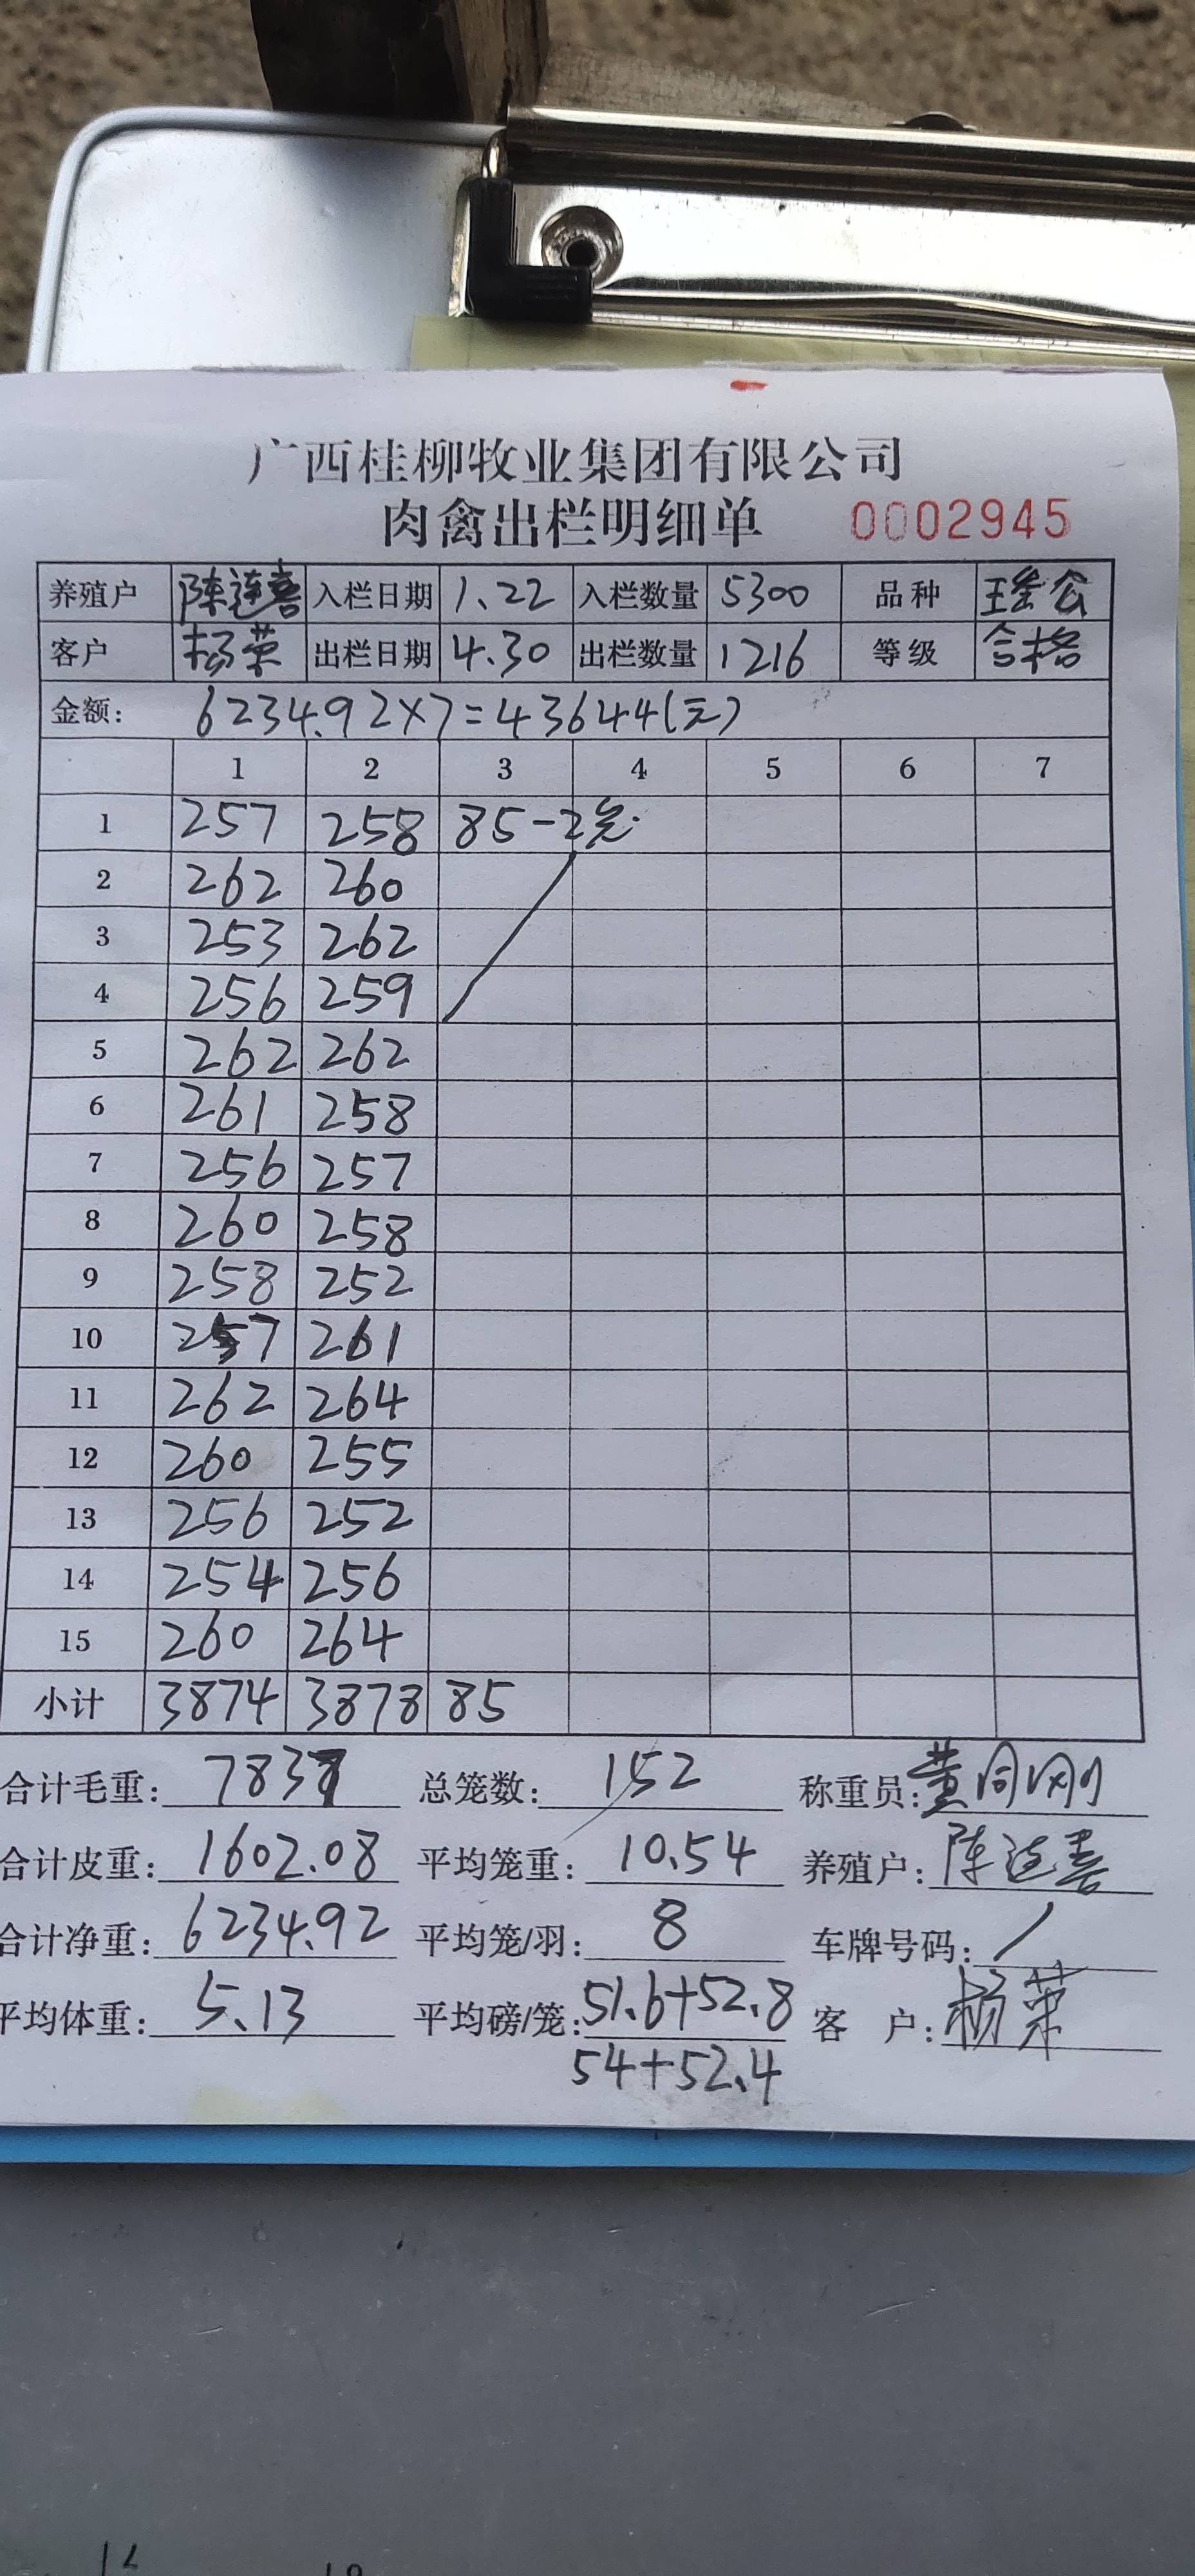 广西桂柳牧业集团有限公司
肉禽出栏明细单 0002945
养殖户 陈连喜 入栏日期 1.22 入栏数量 5300 品种
客户 杨荣 出栏日期 4.30 出栏数量 1216 等级 合格
金额: 6234.92×7=43644(元)
1 2 3 4 5 6 7
1 257 258 85-2
2 262 260
3 253 262
4 256 259
5 262 262
6 261 258
7 256 257
8 260 258
9 258 252
10 257 261
11 262 264
12 260 255
13 256 252
14 254 256
15 260 264
小计 3874 3878 85
合计毛重: 7837 总笼数: 152 称重员: 黄同刚
合计皮重: 1602.08 平均笼重: 10.54 养殖户: 陈连喜
合计净重: 6234.92 平均笼/羽: 8 车牌号码: /
平均体重: 5.13 平均磅/笼: 51.6+52.8 客 户: 杨荣
54+52.4